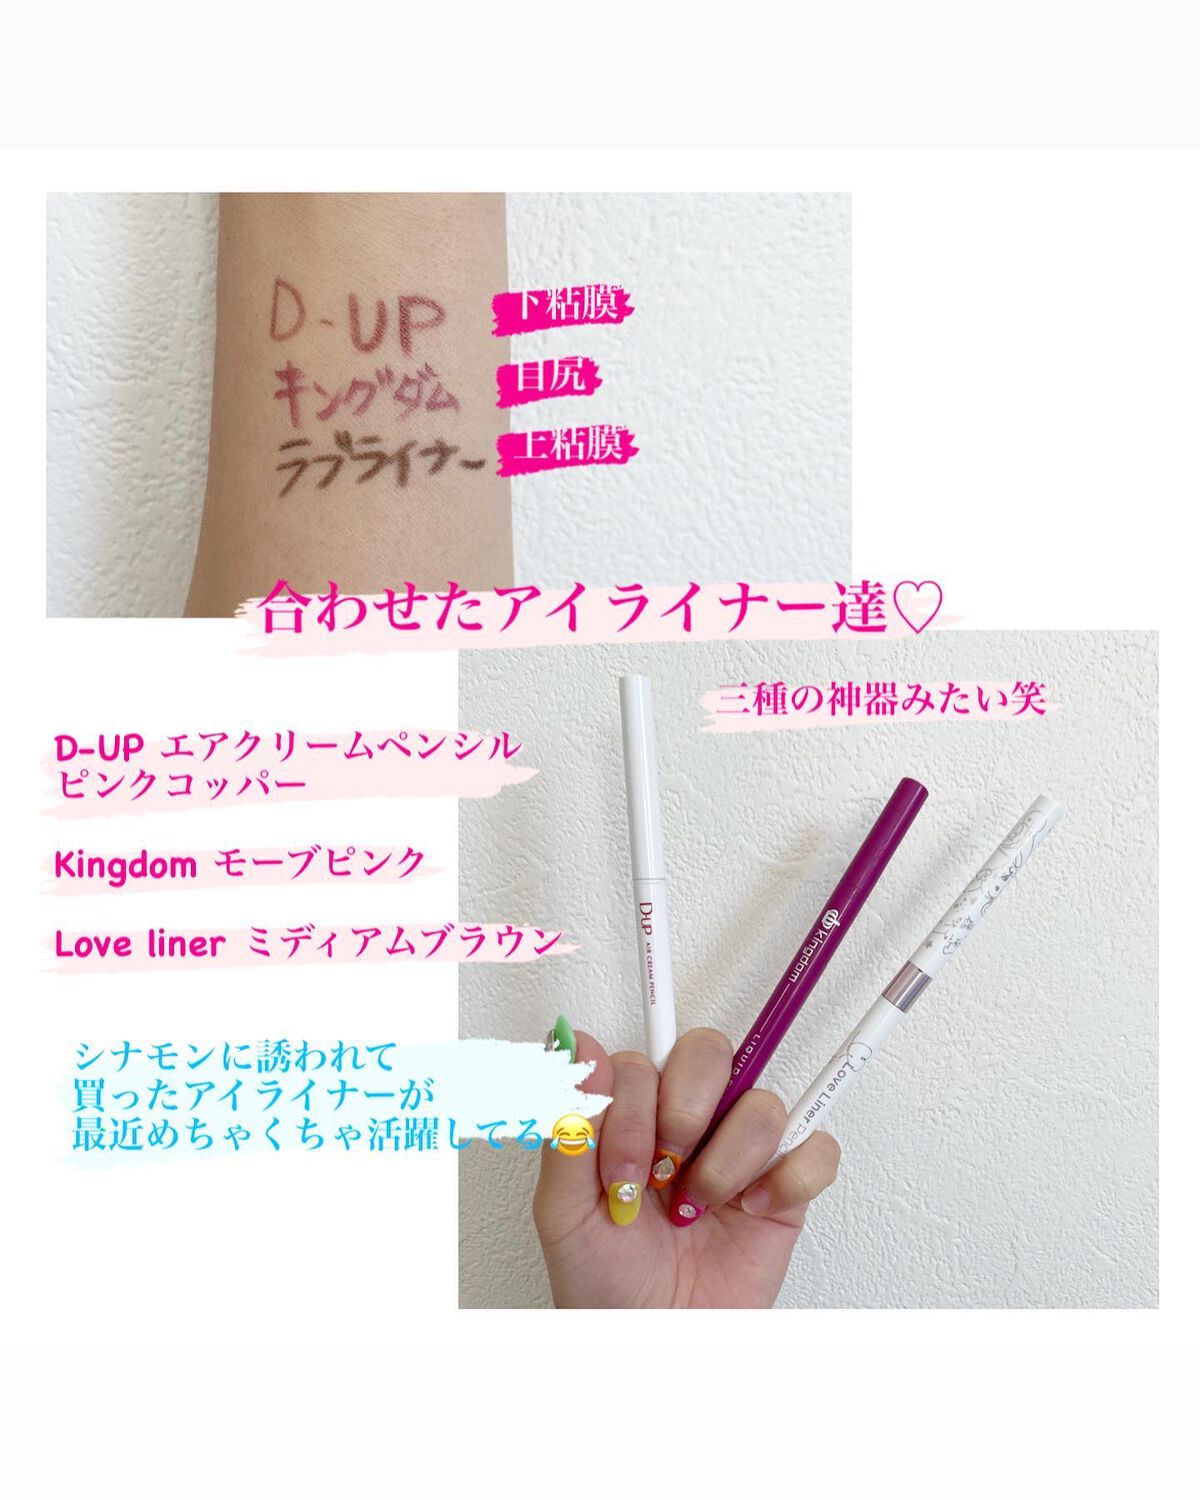 D-UP
下粘膜
キングダム
目尻
ラブライナー
上粘膜
合わせたアイライナー達♡
三種の神器みたい笑
D-UP エアクリームペンシル
ピンクコッパー
Kingdom モーブピンク
Love liner ミディアムブラウン
D-UP AIR CREAM PENCIL
Kingdom
LIQUID
Love Liner
シナモンに誘われて
買ったアイライナーが
最近めちゃくちゃ活躍してる😂